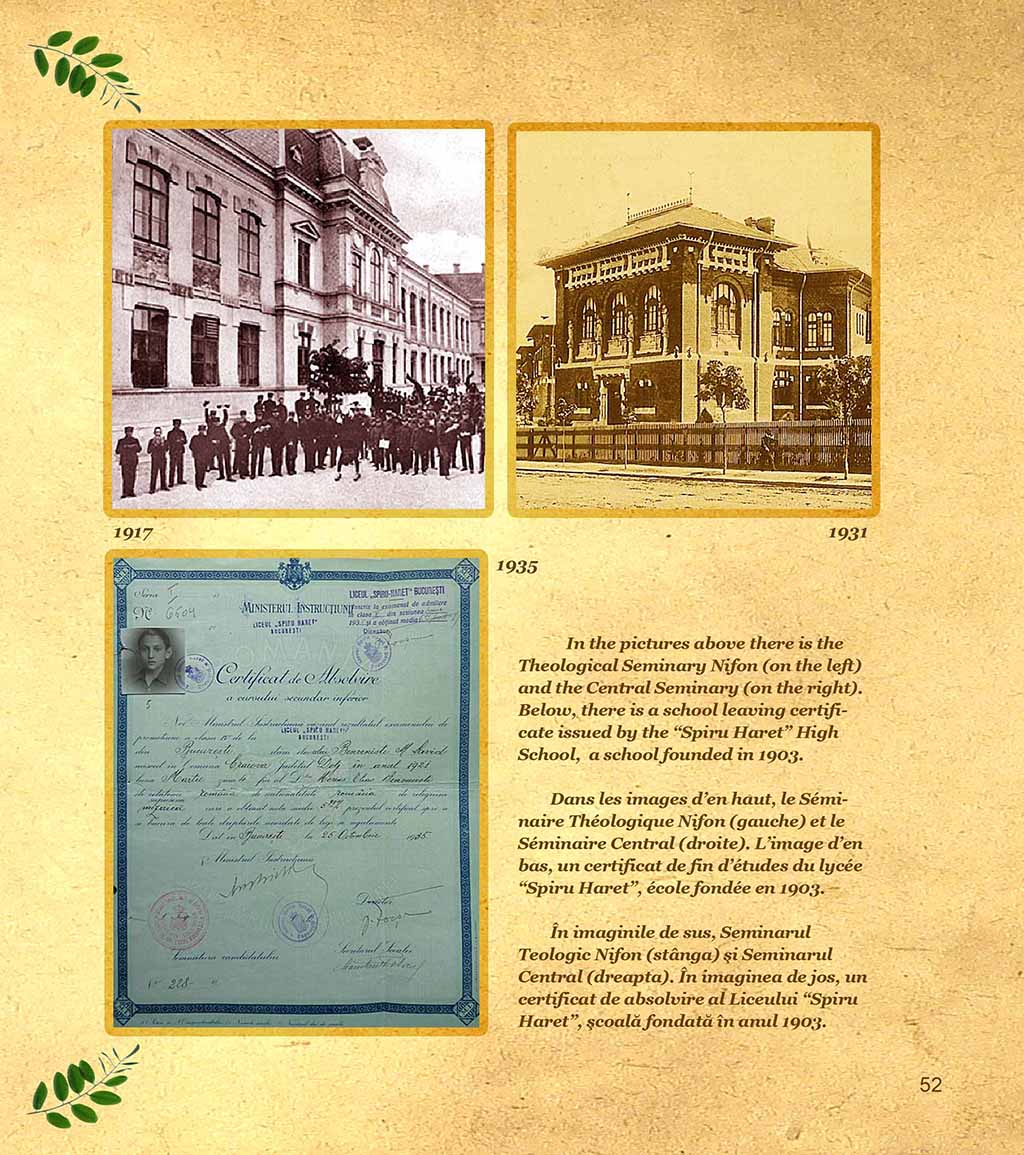 1917
1931
Seria I
Nº 6604
MINISTERUL INSTRUCȚIUNII
LICEUL „SPIRU HARET"
BUCUREȘTI
LICEUL „SPIRU-HARET" BUCUREȘTI
înscris la examenul de admitere
la clasa V din sesiunea
193 și a obținut media
Director,
Certificat de Absolvire
a cursului secundar inferior
Noi Ministrul Instrucțiunii văzând rezultatul examenului de
promoțiune a clasei IV de la
LICEUL „SPIRU HARET"
BUCUREȘTI
din București dăm elevului
născut în Comuna Craiova județul Dolj în anul 1921
luna Martie
română de naționalitate română de religiunea
mozaică care a obținut nota medie prezentul certificat spre a
se bucura de toate drepturile acordate de legi și regulamente
Dat în București la 25 Octombrie 1935
Ministrul Instrucțiunii
Director
Semnătura candidatului
Secretarul Școalei
Nº 228
1935
In the pictures above there is the
Theological Seminary Nifon (on the left)
and the Central Seminary (on the right).
Below, there is a school leaving certifi-
cate issued by the “Spiru Haret” High
School, a school founded in 1903.
Dans les images d’en haut, le Sémi-
naire Théologique Nifon (gauche) et le
Séminaire Central (droite). L’image d’en
bas, un certificat de fin d’études du lycée
“Spiru Haret”, école fondée en 1903.
În imaginile de sus, Seminarul
Teologic Nifon (stânga) şi Seminarul
Central (dreapta). În imaginea de jos, un
certificat de absolvire al Liceului “Spiru
Haret”, şcoală fondată în anul 1903.
52